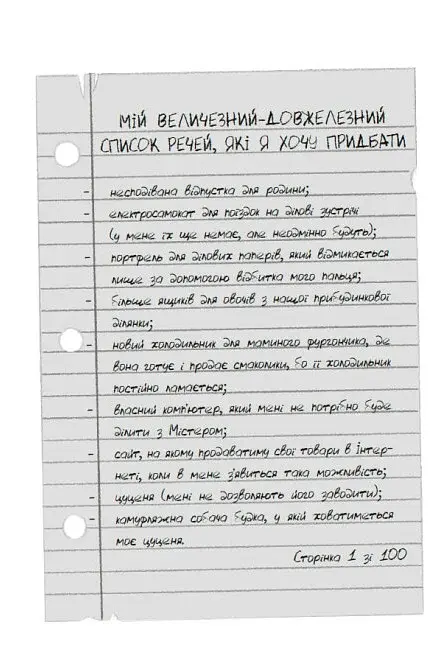 МІЙ ВЕЛИЧЕЗНИЙ-ДОВЖЕЛЕЗНИЙ
СПИСОК РЕЧЕЙ, ЯКІ Я ХОЧУ ПРИДБАТИ
- несподівана відпустка для родини;
- електросамокат для поїздок на ділові зустрічі
(у мене їх ще немає, але неодмінно будуть);
- портфель для ділових паперів, який відмикається
лише за допомогою відбитка мого пальця;
- більше ящиків для овочів з нашої прибудинкової
ділянки;
- новий холодильник для маминого фургончика, де
вона готує і продає смаколики, бо її холодильник
постійно ламається;
- власний комп'ютер, який мені не потрібно буде
ділити з Містером;
- сайт, на якому продаватиму свої товари в інтер-
неті, коли в мене з'явиться така можливість;
- цуценя (мені не дозволяють його заводити);
- камуфляжна собача будка, у якій ховатиметься
моє цуценя.
Сторінка 1 зі 100